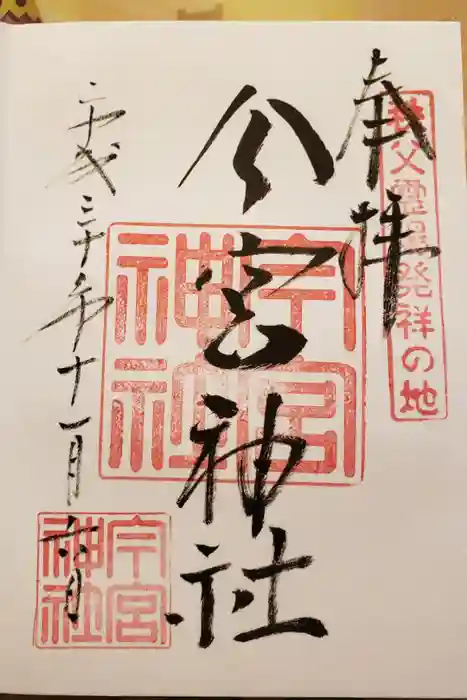 奉拝
秩父靈場発祥の地
今宮神社
今宮
神社
平成三十年十一月六日
今宮
神社